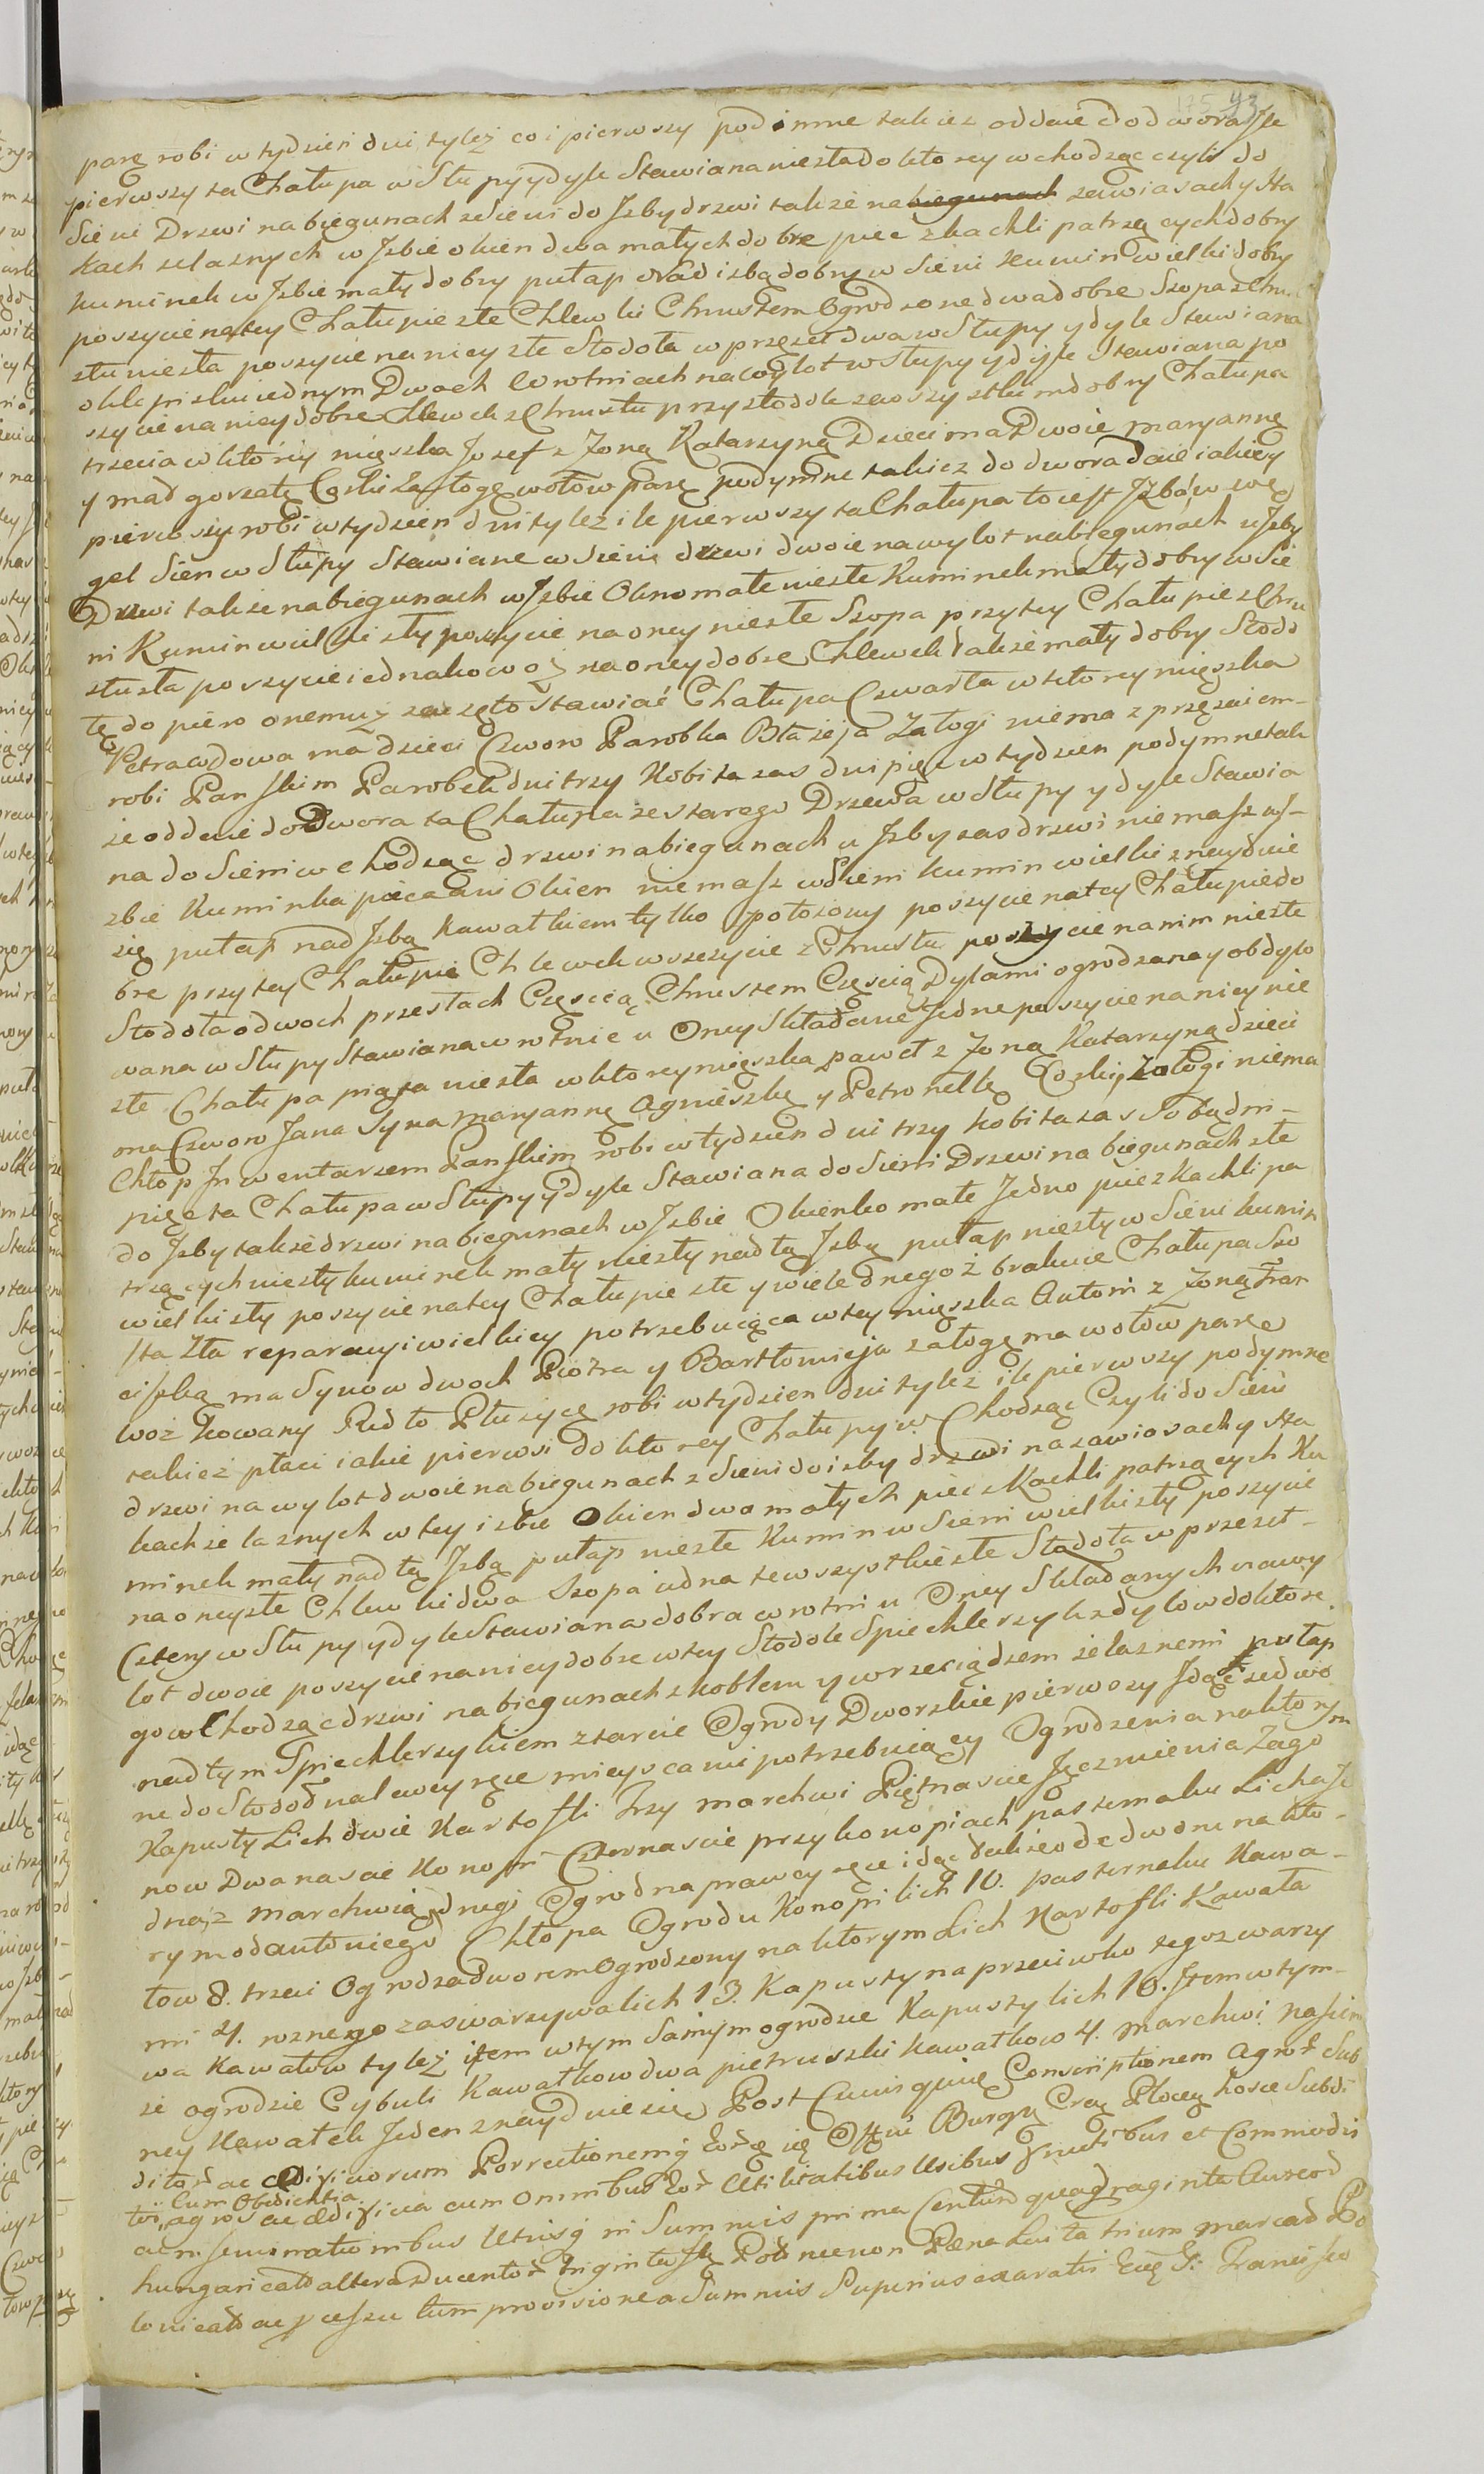 93
parę robi w tydzien dni tyleż co i pierwszy podimne takiez oddaie do dwora Jle
pierwszy ta Chałupa w Słupy y dyle Stawiana niezła do ktorey wchodząc czyli do
Sieni Drzwi na biegunach z Sieni do Jzby drzwi takze na biegunach zawiasach y Ha
kach zelaznych w Jzbie okien dwa małych dobre piec z kachli patrzących dobry
kuminek w Jzbie mały dobry pułap nad izbą dobry w Sieni Kumin wielki dobry
poszycie na tey Chałupie złe Chlewki Chrustem Ogrodzone dwa dobre Szopa z Chru
stu niezła poszycie na niey złe Stodoła w przęseł dwa w Słupy y dyle Stawiana
o klepisku iednym Dwoch Wrotniach na wylot w Słupy y dyle Stawiana po
szycie na niey dobre Chlewek z Chrustu przy stodole ze wszystkim dobry Chałupa
trzecia w ktorey mieszka Jozef z Zoną Katarzyną Dzieci ma Dwoie Maryannę
y Małgorzatę Corki Załogę wołow parę podymne takiez do dwora daie iakiey
pierwszy robi w tydzien dni tylez ile pierwszy ta Chałupa to iest Jzba w wę
geł Sien w Słupy Stawiane w Sieni drzwi dwoie na wylot na biegunach u Jzby
Drzwi takze na biegunach w Jzbie Okno małe niezłe Kuminek mały dobry w Sie
ni Kumin wielki zły poszycie na oney niezłe Szopa przy tey Chałupie z Chru
stu zła poszycie iednakowoż na oney dobre Chlewek takze mały dobry Stodo
łę dopiero onemuż zaczęto stawiać Chałupa Czwarta w ktorey mięszka
Petra wdowa ma dzieci Czworo Parobka Błażeja Załogi niema zprzęzaiem
robi Panskim Parobek dni trzy Kobita zas dni pięć w tydzien podymne tak
że oddaie do Dwora ta Chałupa ze starego Drzewa w Słupy y dyle Stawia
na do Sieni wchodząc drzwi na biegunach u Jzby zas drzwi niemasz w J-
zbie Kuminka pieca ani Okien niemasz w Sieni kumin wielki znayduie
się pułap nad Jzbą kawałkiem tylko położony poszycie na tey Chałupie do
bre przy tey Chałupie Chlewek w szczycie z Chrustu poszycie na nim niezłe
Stodoła o dwoch przesłach Częscią Chrustem Częscią Dylami ogrodzana y obdylo
wana w Słupy Stawiana wrotnie u Oney Składane Jedne poszycie na niey nie
złe Chałupa piąta niezła w ktorey mieszka paweł z Zoną Katarzyną dzieci
ma Czworo Jana Syna Maryannę Agnieszkę y Petronellę Corki, Załogi niema
Chłop Jnwentarzem Panskim robi w tydzien dni trzy kobita zas Sobą dni
pięć ta Chałupa w Słupy y dyle Stawiana do Sieni Drzwi na biegunach złe
do Jzby takze drzwi na biegunach w Jzbie Okienko małe Jedno piec z kachli pa
trzących niezły kuminek mały niezły nad tą Jzbą pułap niezły w Sieni kumin
wielki zły poszycie na tey Chałupie złe y wiele onegoż brakuie Chałupa Szo
sta Zła reparacyi wielkiey potrzebuiąca w tey mięszka Antoni z Zoną Fran
ciszką ma Synow dwoch Piotra y Bartłomieja załogę ma wołow parę
woz kowany Radło Płużycę robi w tydzien dni tylez ile pierwszy podymne
takież płaci iakie pierwsi do ktorey Chałupy w Chodząc Czyli do Sieni
drzwi na wylot dwoie na biegunach z Sieni do izby drzwi na zawiasach y Ha
kach żelaznych w tey izbie Okien dwa małych piec z Kachli patrzących Ku
minek mały nad tą Jzbą pułap niezłe Kumin w Sieni wielki zły poszycie
na oney złe Chlewki dwa Szopa iedna ze wszystkim złe Stodoła w przeseł
Cztery w Słupy y dyle Stawiana dobra wrotni u Oney Składanych na wy
lot dwoie poszycie na niey dobre w tey Stodole Spichlerzyk z dylow do ktore
go w Chodząc drzwi na biegunach z koblem y wrzeciądzem żelaznemi pułap
nad tym Spiechlerzykiem z tarcic Ogrody Dworskie pierwszy Jdąc ze dwo
ru do Stodoł na lewey ręce mieyscami potrzebuiący Ogrodzenia na ktorym
Kapusty Lich dwie Kartofli trzy marchwi Piętnascie Jęczmienia Zago
now Dwanascie Konopi Czternascie przy konopiach pasternaku Licha Je
dna z marchwią drugi Ogrod na prawey ręce idąc takze ode dworu na kto
rym od antoniego Chłopa Ogrodu Konopi lich 10. pasternaku Kawa
łow 8. trzeci Ogrod za dworem Ogrodzony na ktorym Lich Kartofli Kawała
mi 4. roznego zas warzywa lich 13. Kapusty na przeciwko tegoz warzy
wa Kawałow tyleż item w tym Samym ogrodzie Kapusty lich 10. Jtem w tym
ze ogrodzie Cybuli Kawałkow dwa pietruszki kawałkow 4. marchwi nasien
ney Kawałek Jeden znayduie się Post Cuius quidem Conscriptionem Agror Sub
ditor ac aedificiorum Porrectionemq
Cum Obedientia
tos, agros ac aedificia cum omnibus Eor Utilitatibus Usibus Fructibus et Commodis
ac inseminationibus Utrisq in Summis prima Centum quadraginta Aureor
hungaricalium altera Ducentor triginta Flor Pol nec non Paena Luita trium marcar Po
lonicalium ac